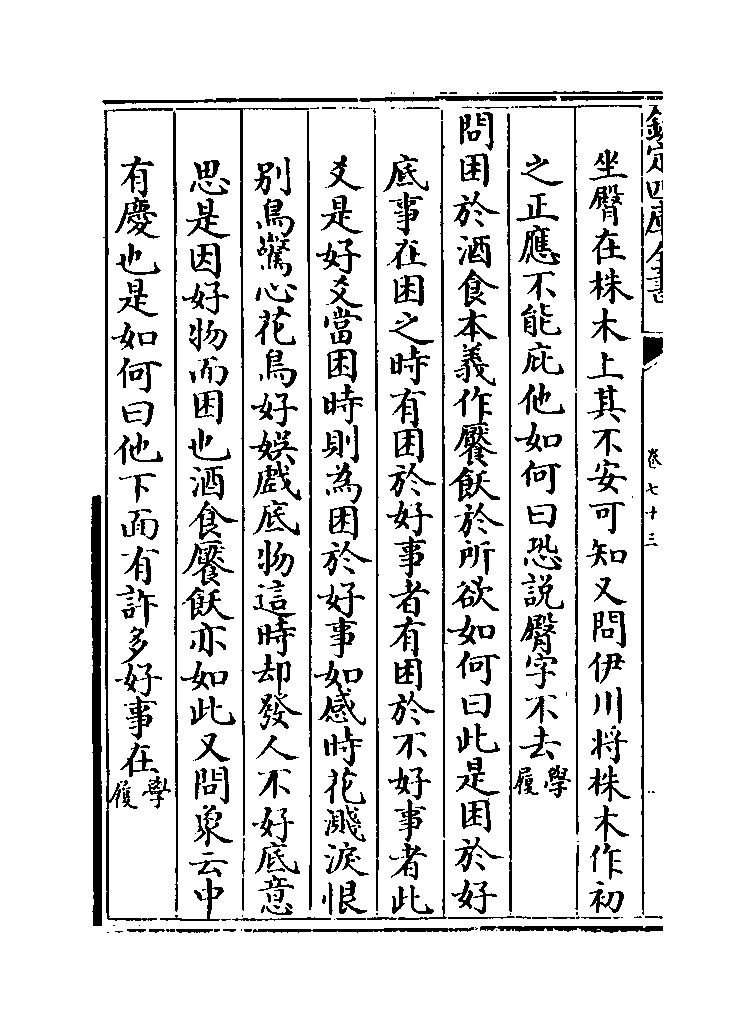 欽定四庫全書
卷七十三
坐臀在株木上其不安可知又問伊川將株木作初
之正應不能庇他如何曰恐說臀字不去學履
問困於酒食本義作饜飫於所欲如何曰此是困於好
底事在困之時有困於好事者有困於不好事者此
爻是好爻當困時則為困於好事如感時花濺淚恨
别鳥驚心花鳥好娛戲底物這時却發人不好底意
思是因好物而困也酒食饜飫亦如此又問象云中
有慶也是如何曰他下面有許多好事在學履